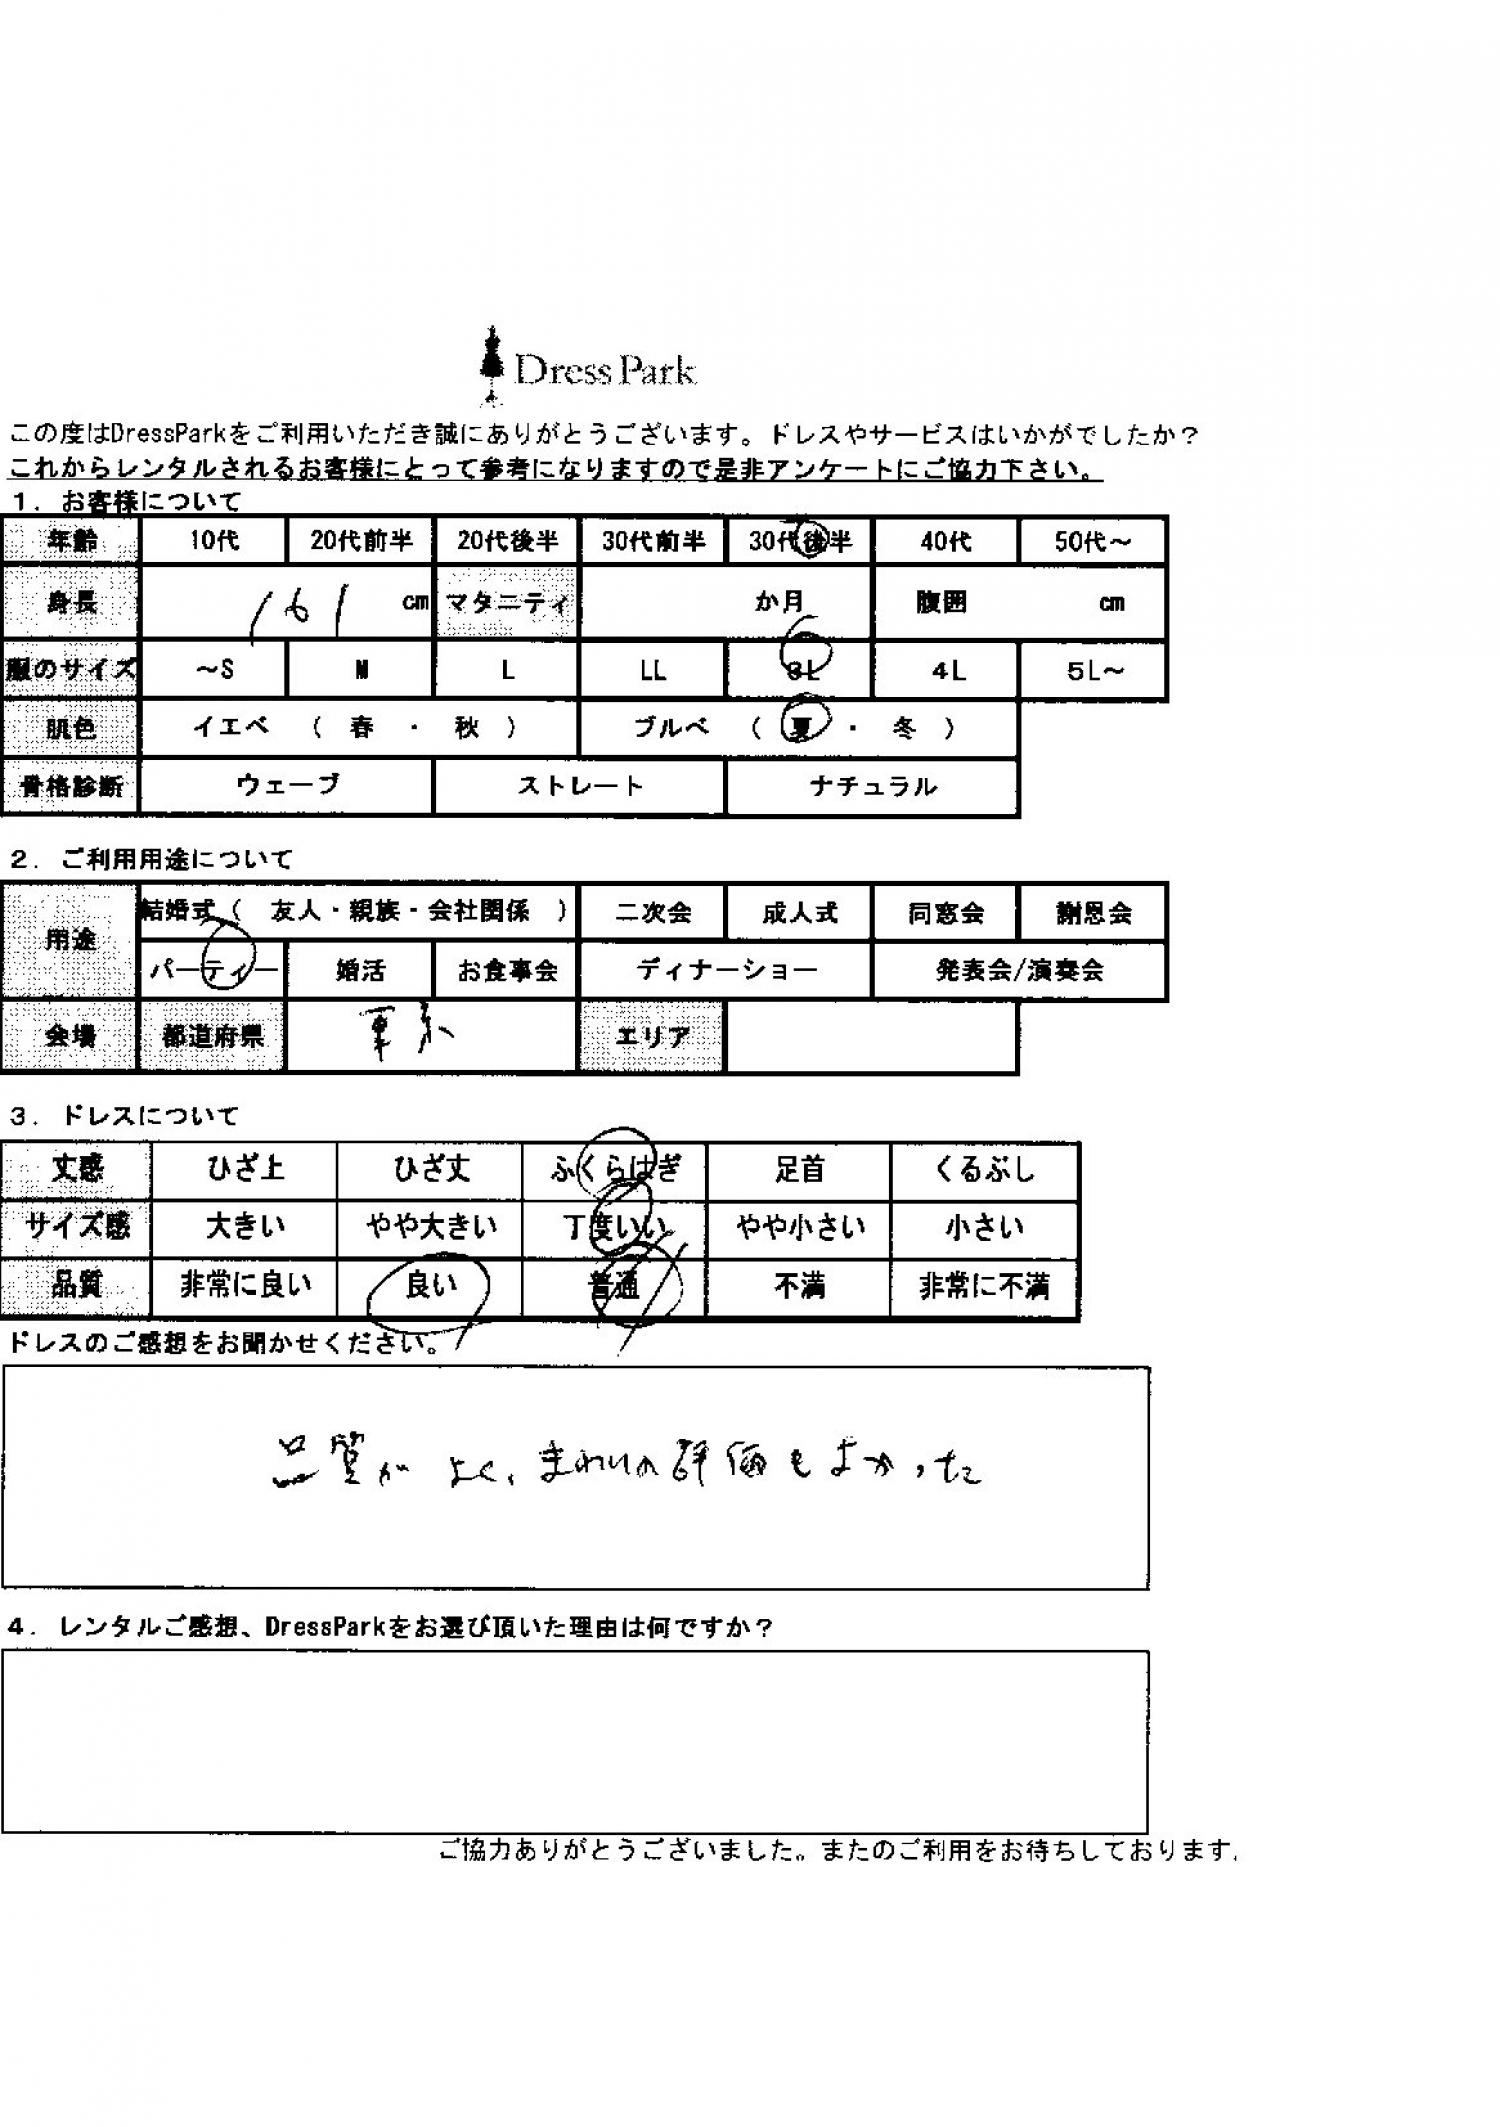 Dress Park
この度はDressParkをご利用いただき誠にありがとうございます。ドレスやサービスはいかがでしたか？
これからレンタルされるお客様にとって参考になりますので是非アンケートにご協力下さい。
1. お客様について
年齢 10代 20代前半 20代後半 30代前半 30代後半 40代 50代～
身長 161 cm マタニティ か月 腹囲 cm
服のサイズ ～S M L LL 3L 4L 5L～
肌色 イエベ （ 春 ・ 秋 ） ブルベ （ 夏 ・ 冬 ）
骨格診断 ウェーブ ストレート ナチュラル
2. ご利用用途について
用途 結婚式（ 友人・親族・会社関係 ） 二次会 成人式 同窓会 謝恩会
パーティー 婚活 お食事会 ディナーショー 発表会/演奏会
会場 都道府県 東京 エリア
3. ドレスについて
丈感 ひざ上 ひざ丈 ふくらはぎ 足首 くるぶし
サイズ感 大きい やや大きい 丁度いい やや小さい 小さい
品質 非常に良い 良い 普通 不満 非常に不満
ドレスのご感想をお聞かせください。
品質がよく、まわりの評価もよかった
4. レンタルご感想、DressParkをお選び頂いた理由は何ですか？
ご協力ありがとうございました。またのご利用をお待ちしております。